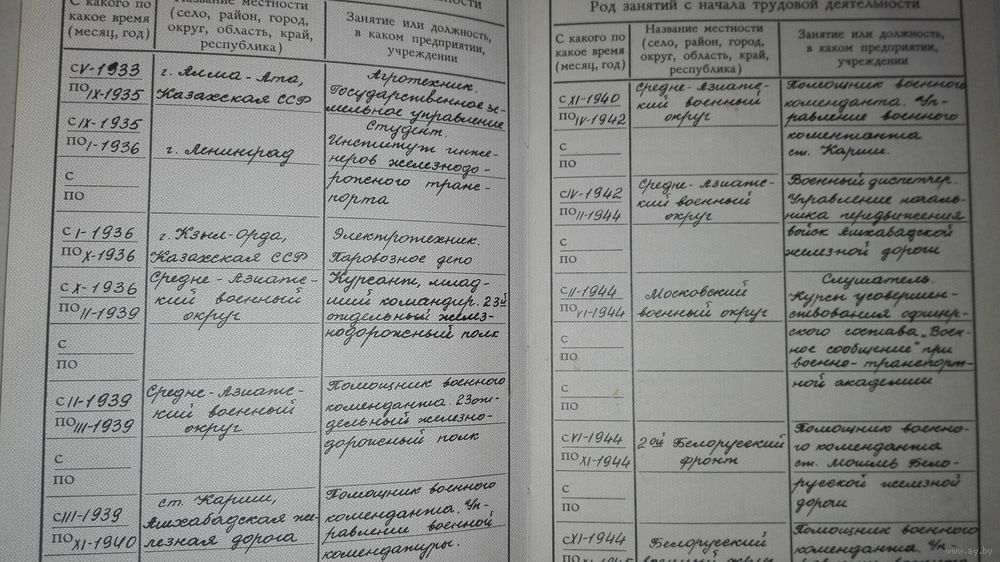 С какого по
какое время
(месяц, год)
Название местности
(село, район, город,
округ, область, край,
республика)
Занятие или должность,
в каком предприятии,
учреждении
с V-1933
по IX-1935
г. Алма-Ата,
Казахская ССР
Агротехник.
Государственное зе-
мельное управление
с IX-1935
по I-1936
г. Ленинград
Студент.
Институт инже-
неров железнодо-
рожного транс-
порта
с
по
с I-1936
по X-1936
г. Кзыл-Орда,
Казахская ССР
Электротехник.
Паровозное депо
с X-1936
по II-1939
Средне-Азиатс-
кий военный
округ
Курсант, млад-
ший командир. 23й
отдельный желез-
нодорожный полк
с
по
с II-1939
по III-1939
Средне-Азиатс-
кий военный
округ
Помощник военного
коменданта. 23 от-
дельный железно-
дорожный полк
с
по
с III-1939
по XI-1940
ст. Карши,
Ашхабадская же-
лезная дорога
Помощник военного
коменданта. Уп-
равление военной
комендатуры.
Род занятий с начала трудовой деятельности
С какого по
какое время
(месяц, год)
Название местности
(село, район, город,
округ, область, край,
республика)
Занятие или должность,
в каком предприятии,
учреждении
с XI-1940
по IV-1942
Средне-Азиатс-
кий военный
округ
Помощник военного
коменданта. Уп-
равление военного
коментанта
ст. Карши.
с
по
с IV-1942
по II-1944
Средне-Азиатс-
кий военный
округ
Военный диспетчер.
Управление началь-
ника передвижения
войск Ашхабадской
железной дороги
с
по
с II-1944
по VI-1944
Московский
военный округ
Слушатель.
Курсы усовершен-
ствования офицер-
ского состава „Воен-
ное сообщение" при
военно-транспорт-
ной академии
с
по
с
по
с VI-1944
по XI-1944
2ой Белорусский
фронт
Помощник военно-
го коменданта
ст. Мошлевь Бело-
русской железной
дороги
с
по
с XI-1944
Белорусский
Помощник военного
коменданта. Уп-
www.ay.by